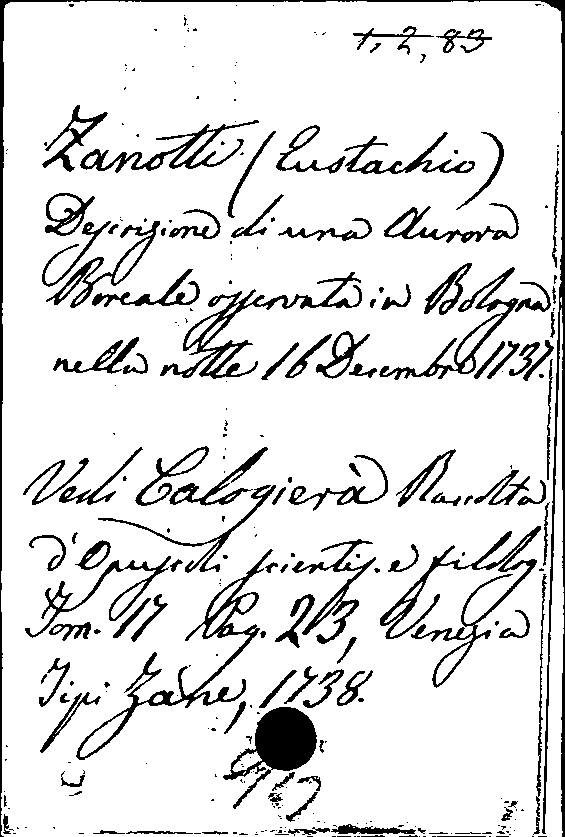 1, 2, 83
Zanotti (Eustachio)
Descrizione di una Aurora
Boreale osservata in Bologna
nella notte 16 Decembre 1737.
Vedi Calogierà Raccolta
d'Opuscoli scientif. e filolog.
Tom. 17 Pag. 23, Venezia
Tipi Zane, 1738.